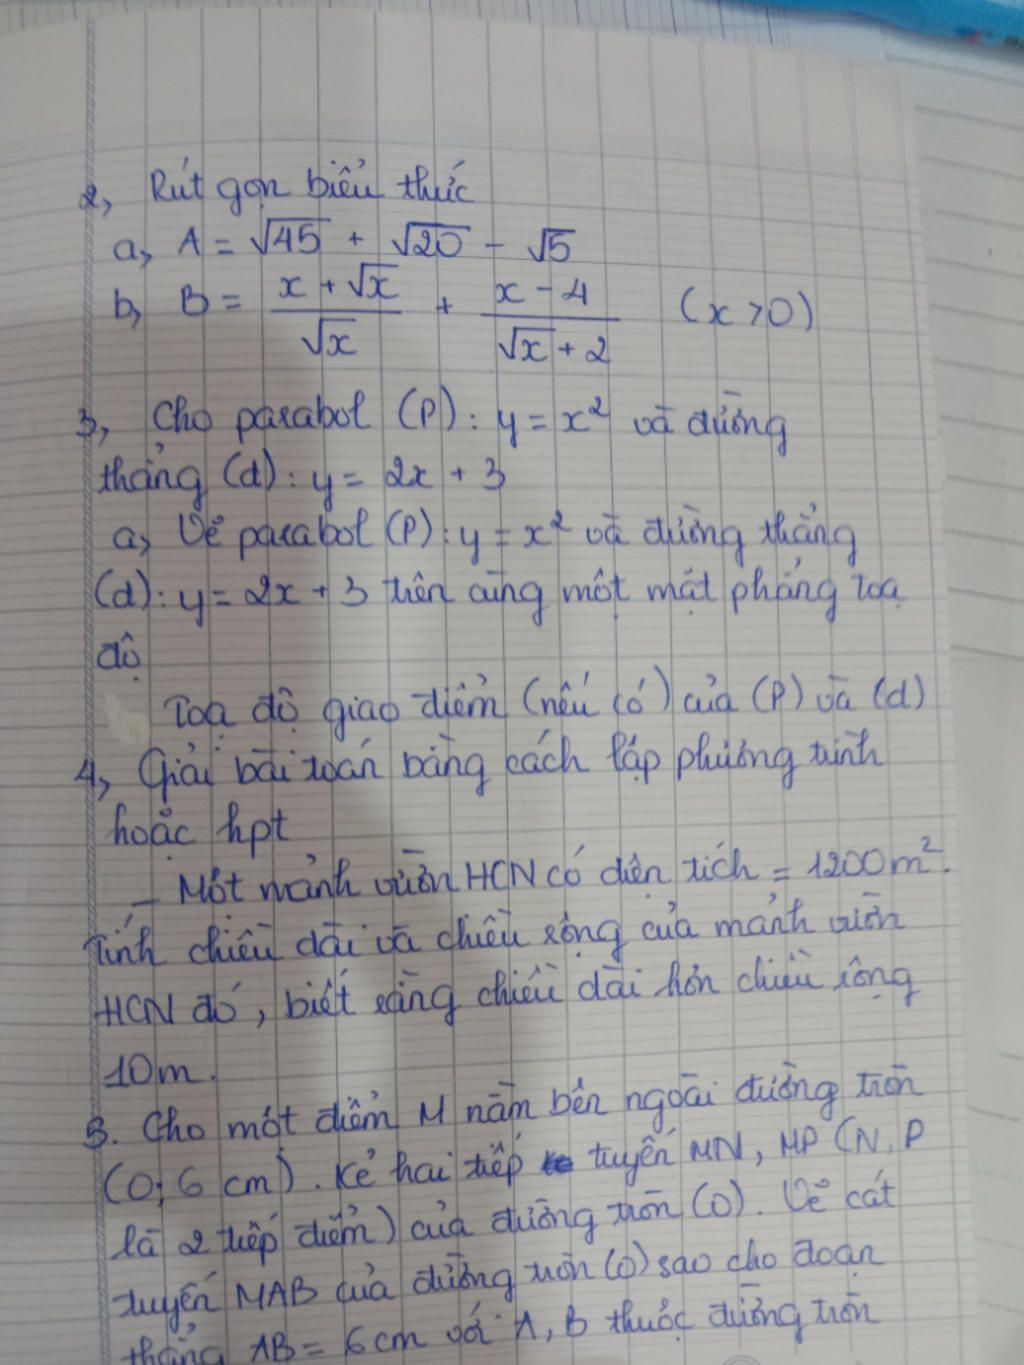 2, Rút gọn biểu thức
a, A = √45 + √20 - √5
b, B = (x + √x)/√x + (x - 4)/(√x + 2) (x > 0)
3, Cho parabol (P): y = x² và đường
thẳng (d): y = 2x + 3
a, Vẽ parabol (P): y = x² và đường thẳng
(d): y = 2x + 3 trên cùng một mặt phẳng toạ
độ
Toạ độ giao điểm (nếu có) của (P) và (d)
4, Giải bài toán bằng cách lập phương trình
hoặc hpt
- Một mảnh vườn HCN có diện tích = 1200m².
Tính chiều dài và chiều rộng của mảnh vườn
HCN đó, biết rằng chiều dài hơn chiều rộng
10m.
5. Cho một điểm M nằm bên ngoài đường tròn
(O; 6 cm). Kẻ hai tiếp tuyến MN, MP (N, P
là 2 tiếp điểm) của đường tròn (O). Vẽ cát
tuyến MAB của đường tròn (O) sao cho đoạn
thẳng AB = 6 cm với A, B thuộc đường tròn